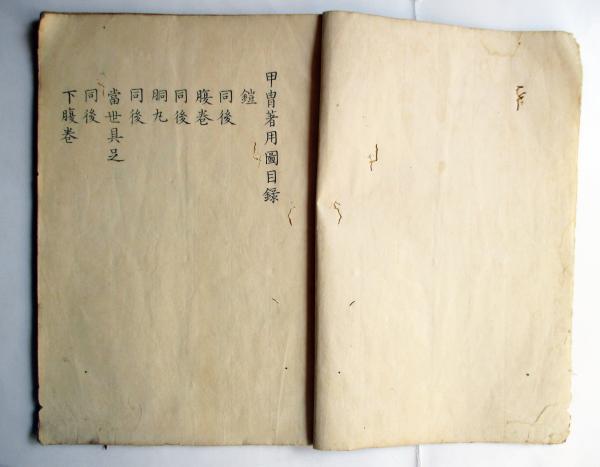 甲冑著用圖目録
鎧
同後
腹巻
同後
胴丸
同後
當世具足
同後
下腹巻